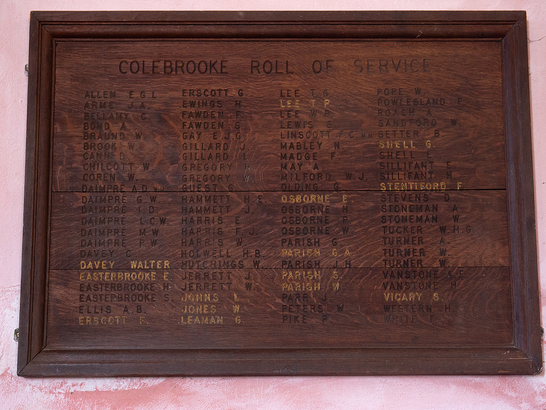 COLEBROOKE ROLL OF SERVICE
ALLEM E.G.L.
ARME J.A.
BELLAMY C.
BOND A.
BRAUND W.
BROOK
CANN
CHILCOTT W.
COREN W.
DAIMPRE A.D.
DAIMPRE G.W.
DAIMPRE I.D.
DAIMPRE L.C.W.
DAIMPRE M.
DAIMPRE P.W.
DAVEY C.
DAVEY WALTER
EASTERBROOKE E.
EASTERBROOKE H.
EASTERBROOKE S.
ELLIS A.B.
ERSCOTT F.
ERSCOTT G.
EWINGS H.
FAWDEN F.
FAWDEN S.
GAY E.J.G.
GILLARD J.
GILLARD
GREGORY
GREGORY
GUEST G.
HAMMETT H.
HAMMETT J.
HARRIS
HARRIS F.J.
HARRIS W.
HOLWELL H.B.
HUTCHINGS W.
JERRETT J.
JERRETT W.
JOHNS L.
JONES W.
LEAMAN G.
LEE T.G.
LEE T.P.
LEE W.
LEWIS
LINSCOTT
MABLEY N.
MADGE F.
MAY A.
MILFORD W.J.
OLDING G.
OSBORNE E.
OSBORNE H.
OSBORNE
OSBORNE W.
PARISH G.
PARISH G.A.
PARISH J.H.
PARISH S.
PARISH W.
PARR J.
PETERS W.
PIKE F.
POPE W.
POWLESLAND F.
SANDFORD W.
SETTER
SHELL G.
SHELL
SILLIFANT E.
SILLIFANT H.
STENTIFORD F.
STEVENS
STONEMAN A.
STONEMAN W.
TUCKER W.H.G.
TURNER A.
TURNER W.
TURNER W.
VANSTONE
VANSTONE H.
VICARY S.
WESTERN H.